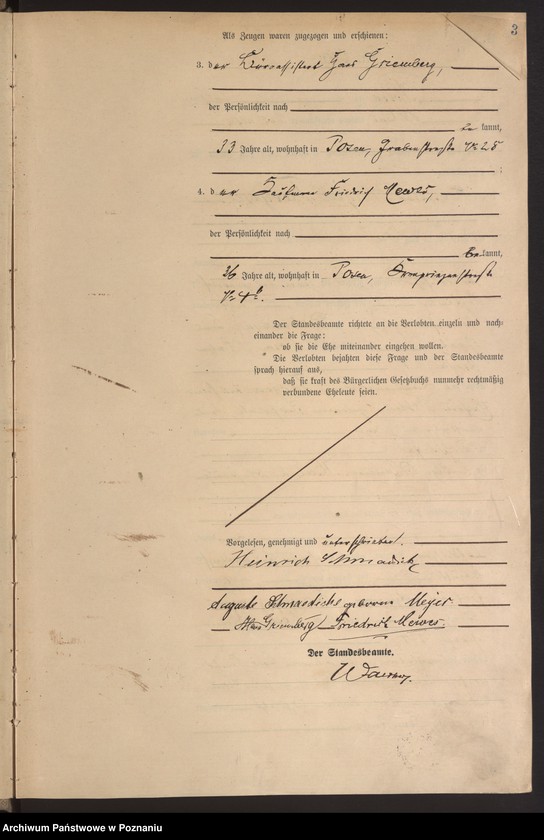 3
Als Zeugen waren zugezogen und erschienen:
3. der Hans Griemberg,
der Persönlichkeit nach
be kannt,
33 Jahre alt, wohnhaft in Posen, Grabenstraße No 25
;
4. der Kaufmann Friedrich Mewes,
der Persönlichkeit nach
be kannt,
26 Jahre alt, wohnhaft in Posen, Kronprinzenstraße
No
Der Standesbeamte richtete an die Verlobten einzeln und nach-
einander die Frage:
ob sie die Ehe miteinander eingehen wollen.
Die Verlobten bejahten diese Frage und der Standesbeamte
sprach hierauf aus,
daß sie kraft des Bürgerlichen Gesetzbuchs nunmehr rechtmäßig
verbundene Eheleute seien.
Vorgelesen, genehmigt und unterschrieben.
Heinrich Schmaedicke
Auguste Schmaedicke geborene Meyer
Hans Griemberg Friedrich Mewes
Der Standesbeamte.
Archiwum Państwowe w Poznaniu